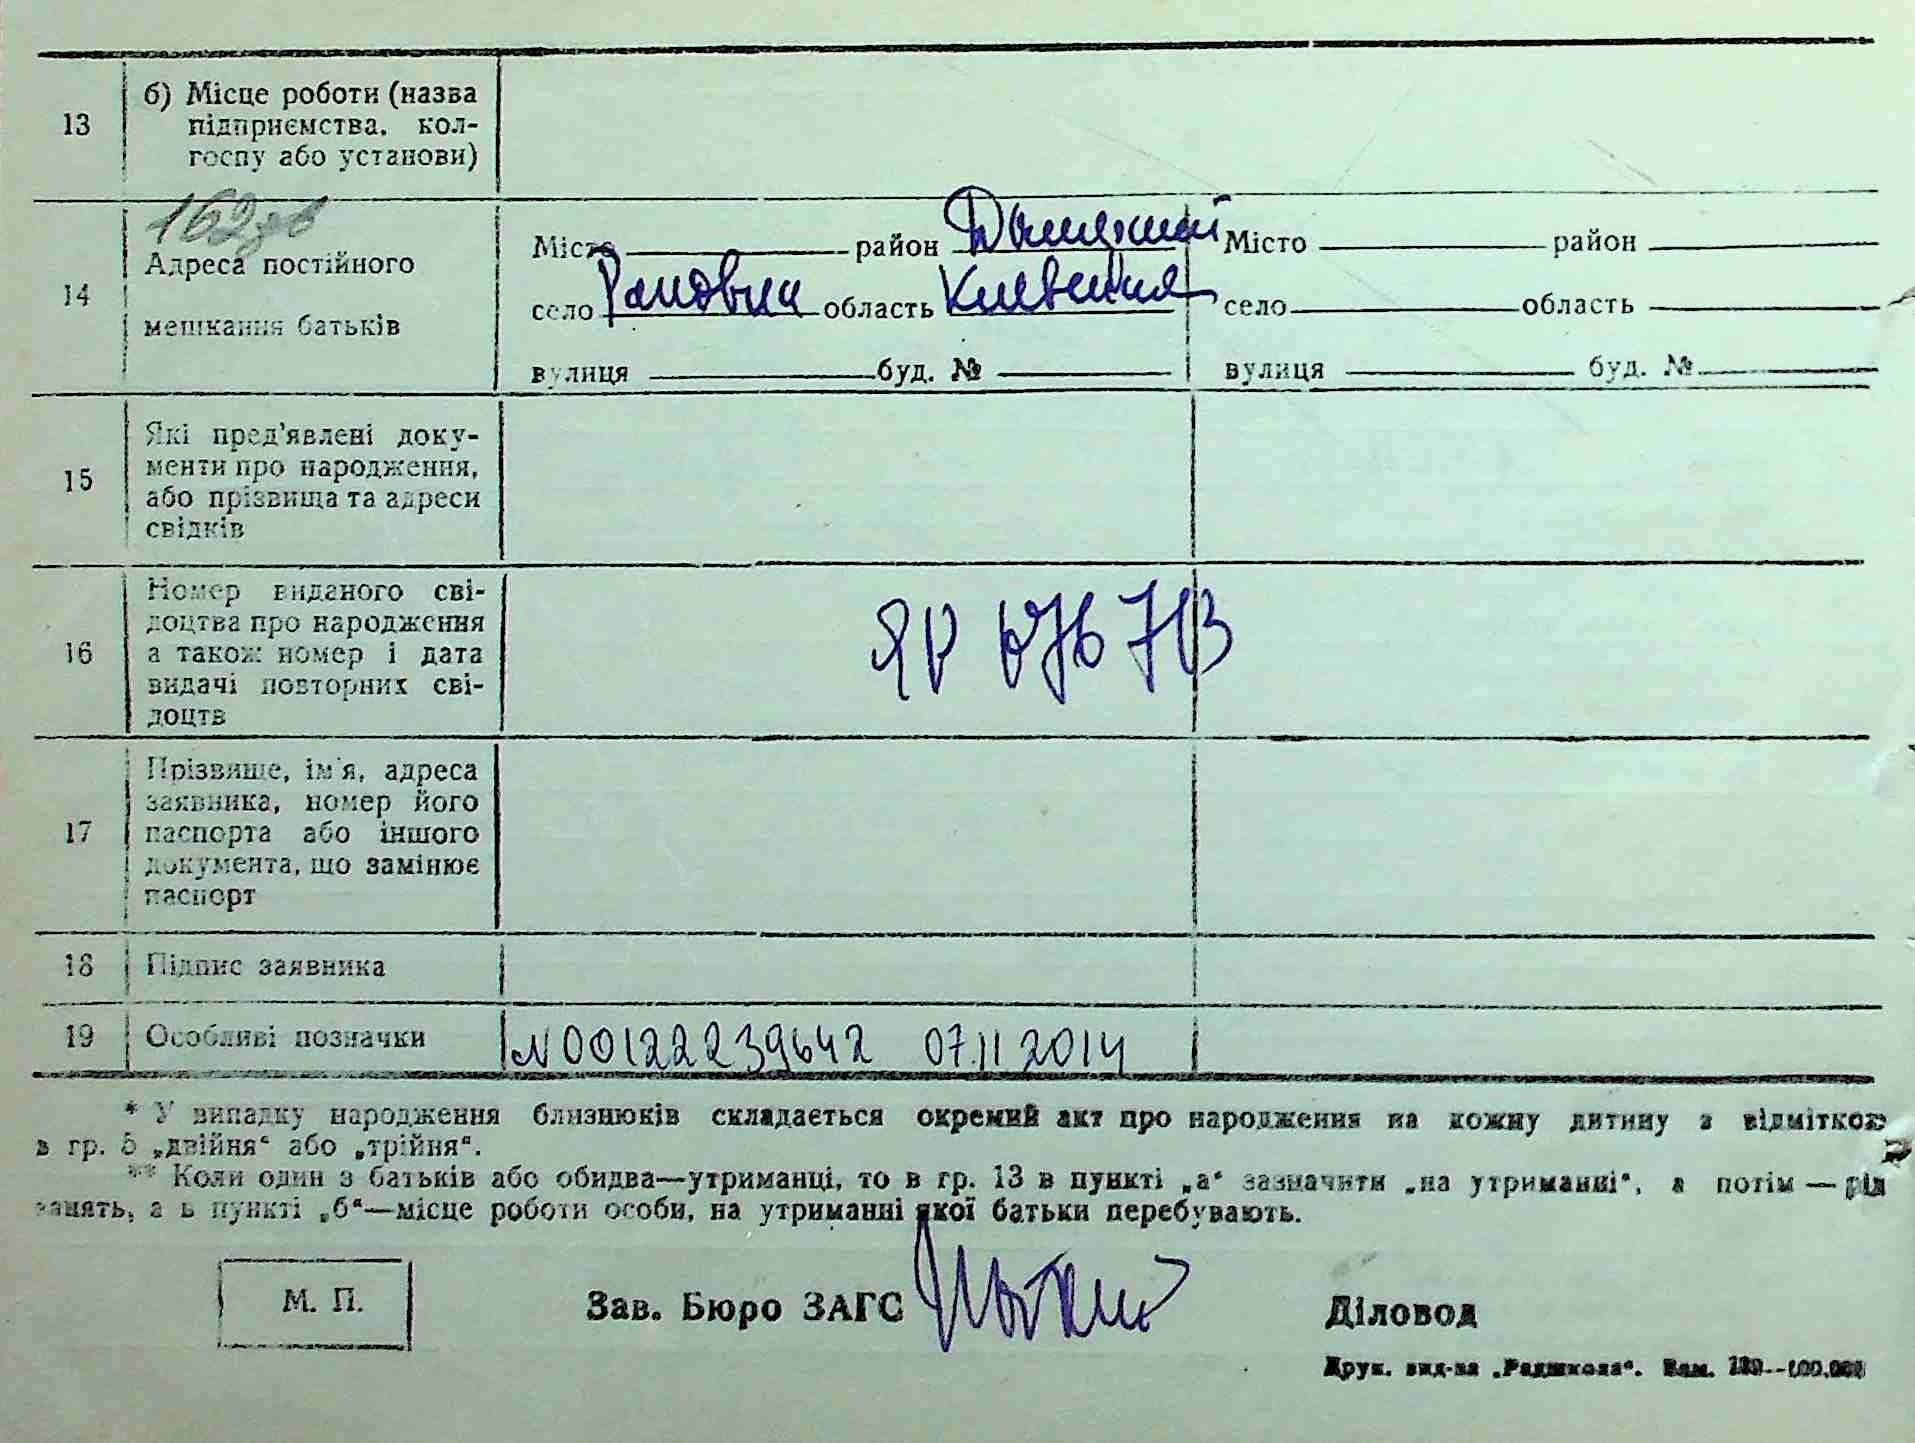 13
б) Місце роботи (назва
підприємства, кол-
госпу або установи)
14
Адреса постійного
мешкання батьків
Місто район Місто район
село область село область
вулиця буд. № вулиця буд. №
15
Які пред'явлені доку-
менти про народження,
або прізвища та адреси
свідків
16
Номер виданого сві-
доцтва про народження
а також номер і дата
видачі повторних сві-
доцтв
17
Прізвище, ім'я, адреса
заявника, номер його
паспорта або іншого
документа, що замінює
паспорт
18 Підпис заявника
19 Особливі позначки N00122239642 07.11 2014
* У випадку народження близнюків складається окремий акт про народження на кожну дитину з відміткою
в гр. 5 „двійня“ або „трійня“.
** Коли один з батьків або обидва—утриманці, то в гр. 13 в пункті „а“ зазначити „на утриманні“, а потім — рід
занять, а в пункті „б“—місце роботи особи, на утриманні якої батьки перебувають.
М. П. Зав. Бюро ЗАГС Діловод
Друк. вид-ва „Радшкола“. Зам.